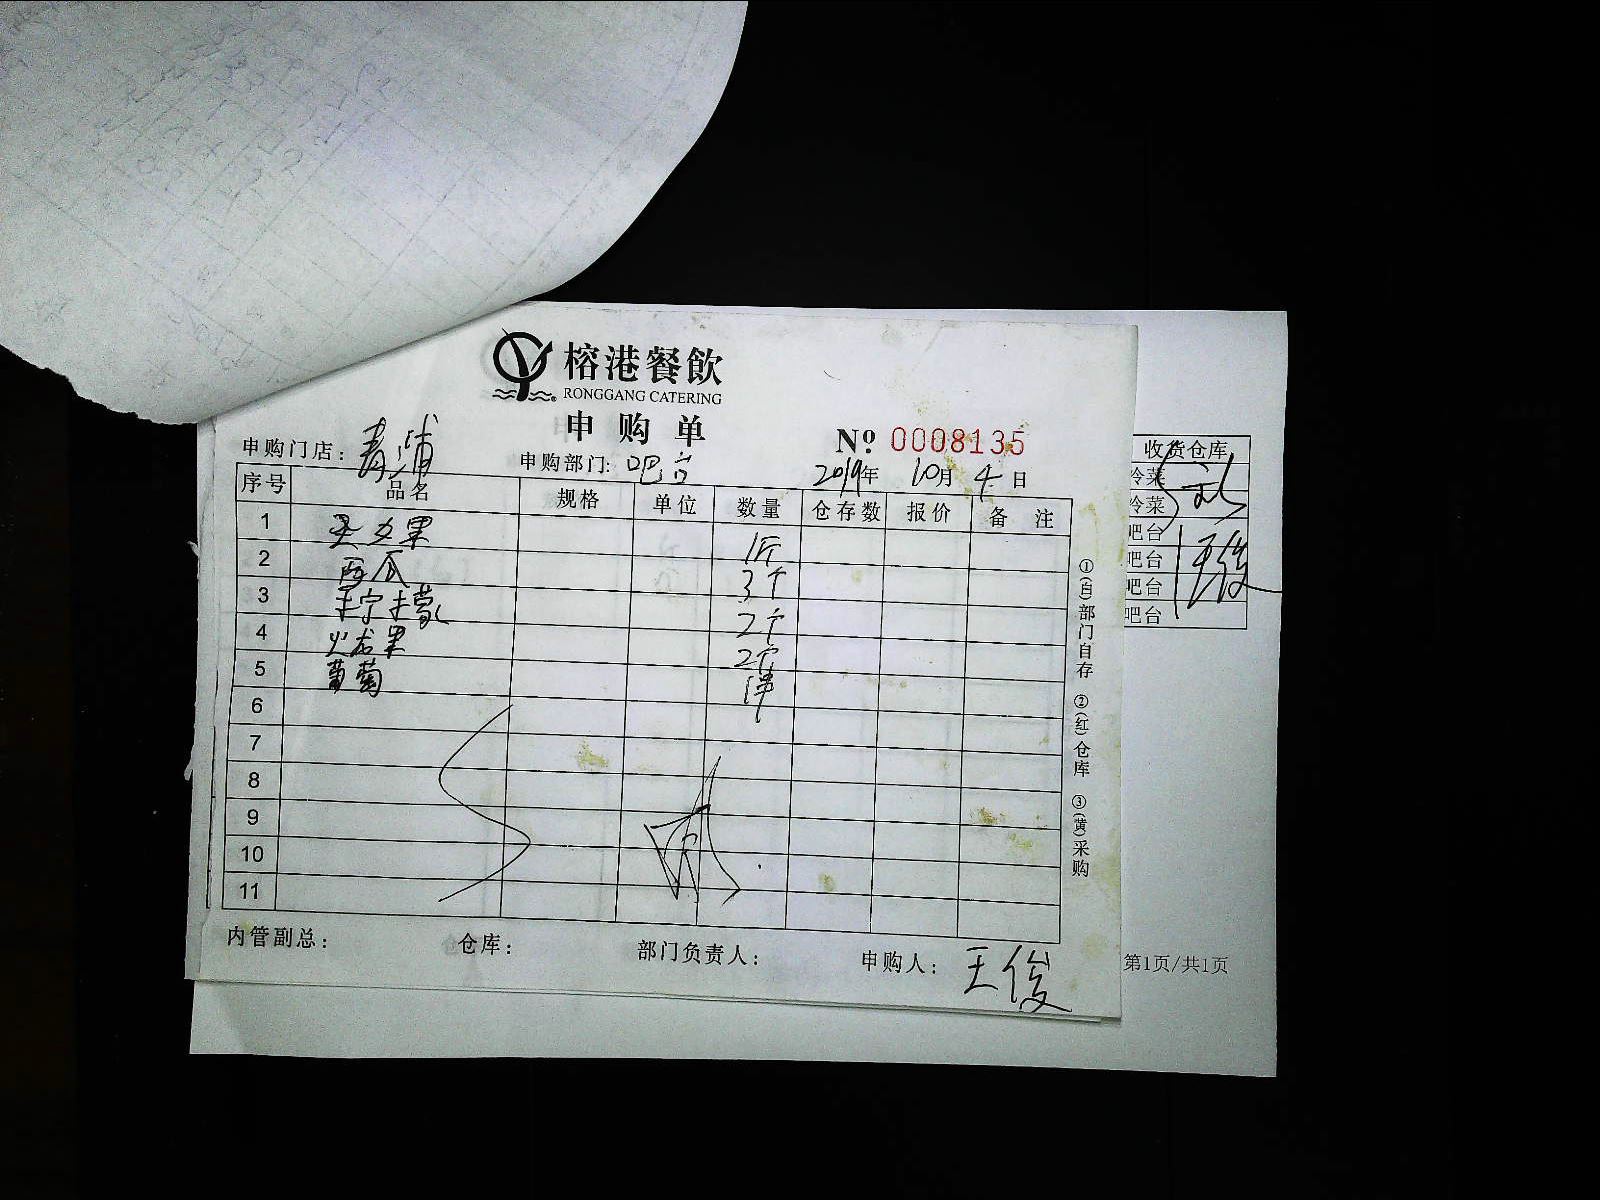 榕港餐飲
RONGGANG CATERING
申购单
№ 0008135
申购门店：青浦 申购部门：吧台 2019年 10月 4日
序号 品名 规格 单位 数量 仓存数 报价 备注
1 圣女果 1斤
2 西瓜 3个
3 2个
4 火龙果 2个
5 葡萄 1串
6
7
8
9
10
11
内管副总： 仓库： 部门负责人： 申购人：王俊
①(白)部门自存 ②(红)仓库 ③(黄)采购
收货仓库
冷菜
冷菜
吧台
吧台
吧台
吧台
王俊
第1页/共1页